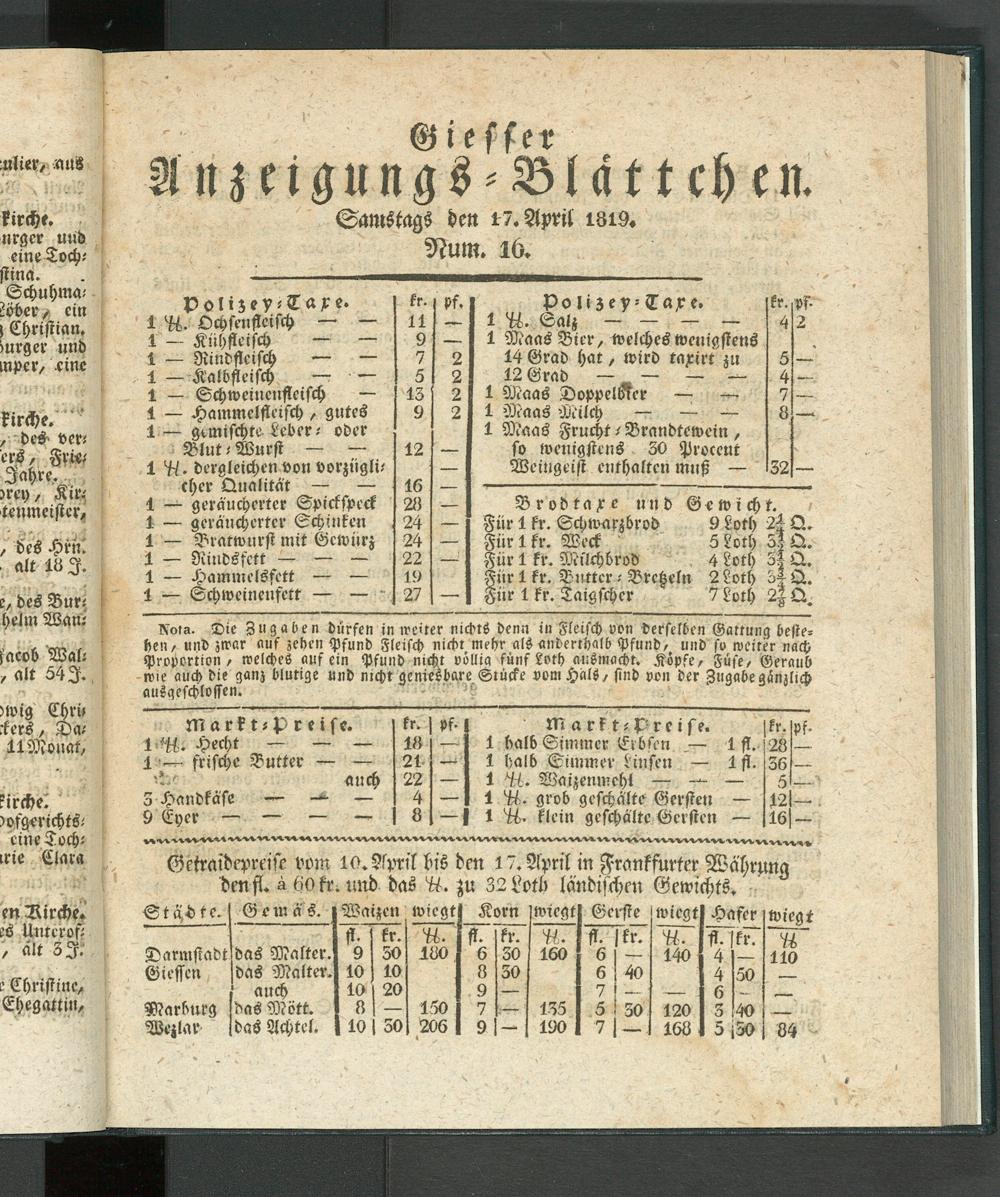 culier, aus
kirche.
ürger und
eine Toch⸗
stina.
Schuhma⸗
Löber, ein
g Christian.
bürger und
mper, eine
kirche.
, des ver⸗
ers, Frie⸗
Jahre.
orey, Kir⸗
stenmeister,
, des Hrn.
alt 18 J.
e, des Bur⸗
helm Wan⸗
Jacob Wal⸗
, alt 54 J.
dwig Chri⸗
ckers, Da⸗
11 Monat,
kirche.
Hofgerichts⸗
eine Toch⸗
arie Clara
en Kirche.
es Unterof⸗
, alt 3 J.
e Christine,
Ehegattin,
Giesser
Anzeigungs⸗Blättchen.
Samstags den 17. April 1819.
Num. 16.
Polizey⸗Taxe. kr. pf.
1 ℔. Ochsenfleisch — — 11 —
1 — Kühfleisch — — 9 —
1 — Rindfleisch — — 7 2
1 — Kalbfleisch — — 5 2
1 — Schweinenfleisch — 13 2
1 — Hammelfleisch, gutes 9 2
1 — gemischte Leber⸗ oder
Blut⸗Wurst — — 12 —
1 ℔. dergleichen von vorzügli⸗ —
cher Qualität — — 16 —
1 — geräucherter Spickspeck 28 —
1 — geräucherter Schinken 24 —
1 — Bratwurst mit Gewürz 24 —
1 — Rindsfett — — — 22 —
1 — Hammelsfett — — 19
1 — Schweinenfett — — 27 —
Polizey⸗Taxe. kr. pf.
1 ℔. Salz — — — — 4 2
1 Maas Bier, welches wenigstens
14 Grad hat, wird taxirt zu 5 —
12 Grad — — — — 4 —
1 Maas Doppelbier — — 7 —
1 Maas Milch — — — 8 —
1 Maas Frucht⸗Brandtewein,
so wenigstens 30 Procent
Weingeist enthalten muß — 32 —
Brodtaxe und Gewicht.
Für 1 kr. Schwarzbrod 9 Loth Q.
Für 1 kr. Weck 5 Loth Q.
Für 1 kr. Milchbrod 4 Loth Q.
Für 1 kr. Butter⸗Bretzeln 2 Loth Q.
Für 1 kr. Taigscher 7 Loth Q.
Nota. Die Zugaben dürfen in weiter nichts denn in Fleisch von derselben Gattung beste⸗
hen, und zwar auf zehen Pfund Fleisch nicht mehr als anderthalb Pfund, und so weiter nach
Proportion, welches auf ein Pfund nicht völlig fünf Loth ausmacht. Köpfe, Füse, Geraub
wie auch die ganz blutige und nicht geniesbare Stücke vom Hals, sind von der Zugabe gänzlich
ausgeschlossen.
Markt⸗Preise. kr. pf.
1 ℔. Hecht — — — 18 —
1 — frische Butter — — 21 —
auch 22 —
3 Handkäse — — — 4 —
9 Eyer — — — — 8 —
Markt⸗Preise. kr. pf.
1 halb Simmer Erbsen — 1 fl. 28 —
1 halb Simmer Linsen — 1 fl. 36 —
1 ℔. Waizenmehl — — — 5 —
1 ℔. grob geschälte Gersten — 12 —
1 ℔. klein geschälte Gersten — 16 —
Getraidepreise vom 10. April bis den 17. April in Frankfurter Währung
den fl. à 60 kr. und das ℔. zu 32 Loth ländischen Gewichts.
Städte. Gemäs. Waizen wiegt Korn wiegt Gerste wiegt Hafer wiegt
fl. kr. ℔. fl. kr. ℔. fl. kr. ℔. fl. kr. ℔
Darmstadt das Malter. 9 30 180 6 30 160 6 — 140 4 — 110
Giessen das Malter. 10 10 8 30 6 40 4 50 —
auch 10 20 9 — 7 — — 6 — —
Marburg das Mött. 8 — 150 7 — 135 5 30 120 3 40 —
Wezlar das Achtel. 10 30 206 9 — 190 7 — 168 5 30 84